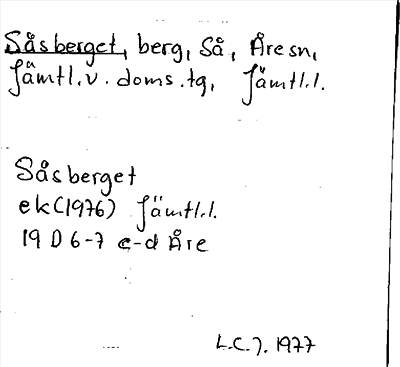 Såsberget, berg, Så, Åre sn,
Jämtl. v. doms. tg, Jämtl.l.
Såsberget
ek (1976) Jämtl.l.
19 D 6-7 c-d Åre
L.C.J. 1977